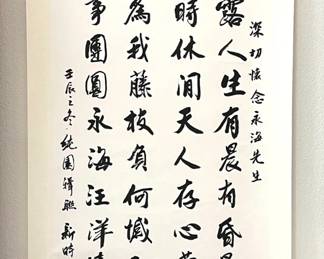 深切懷念永海先生
露人生有晨有昏
時休閒天人存心
為我藤枝負何憾
事團圓永海汪洋
壬辰之冬 純園緝聯 新時